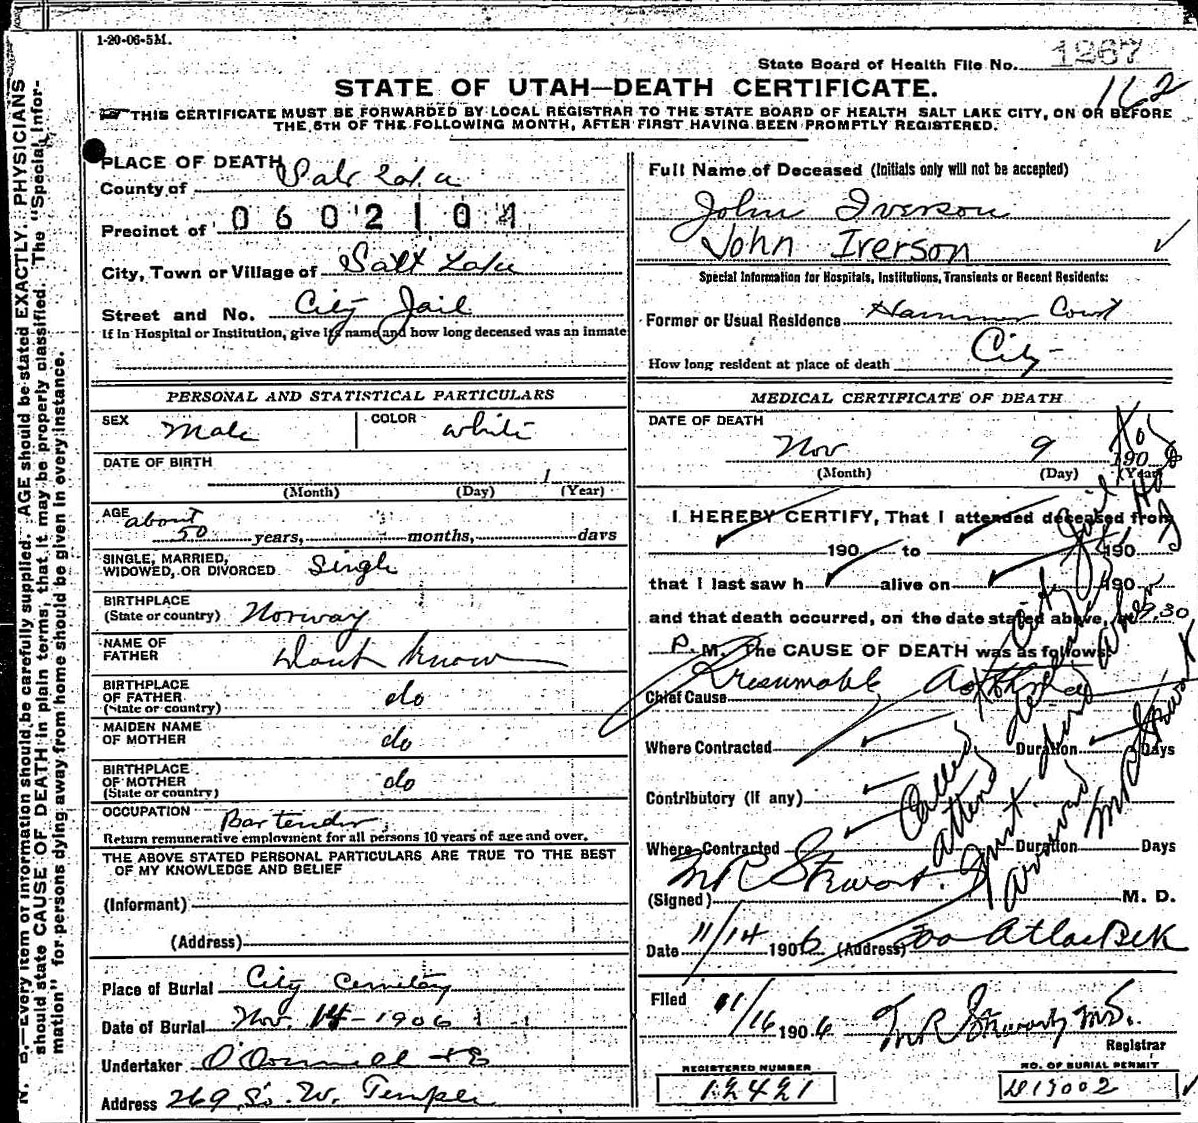 1-20-06-5M.
State Board of Health File No. 1267
STATE OF UTAH—DEATH CERTIFICATE.
162
THIS CERTIFICATE MUST BE FORWARDED BY LOCAL REGISTRAR TO THE STATE BOARD OF HEALTH SALT LAKE CITY, ON OR BEFORE
THE 5TH OF THE FOLLOWING MONTH, AFTER FIRST HAVING BEEN PROMPTLY REGISTERED.
PLACE OF DEATH
County of Salt Lake
Precinct of 0602104
City, Town or Village of Salt Lake
Street and No. City Jail
If in Hospital or Institution, give its name and how long deceased was an inmate
PERSONAL AND STATISTICAL PARTICULARS
SEX Male COLOR White
DATE OF BIRTH
(Month) (Day) (Year)
AGE about
50 years, months, days
SINGLE, MARRIED,
WIDOWED, OR DIVORCED Single
BIRTHPLACE
(State or country) Norway
NAME OF
FATHER Dont know
BIRTHPLACE
OF FATHER
(State or country) do
MAIDEN NAME
OF MOTHER do
BIRTHPLACE
OF MOTHER
(State or country) do
OCCUPATION Bartender
Return remunerative employment for all persons 10 years of age and over.
THE ABOVE STATED PERSONAL PARTICULARS ARE TRUE TO THE BEST
OF MY KNOWLEDGE AND BELIEF
(Informant)
(Address)
Place of Burial City Cemetery
Date of Burial Nov. 14-1906
Undertaker O'Donnell & Co
Address 269 So. W. Temple
Full Name of Deceased (Initials only will not be accepted)
John Iverson
John Iverson
Special Information for Hospitals, Institutions, Transients or Recent Residents:
Former or Usual Residence Court
City
How long resident at place of death
MEDICAL CERTIFICATE OF DEATH
DATE OF DEATH
Nov 9 1906
(Month) (Day) (Year)
I HEREBY CERTIFY, That I attended deceased from
190 to 190
that I last saw h alive on 190
and that death occurred, on the date stated above, at 9.30
P. M. The CAUSE OF DEATH was as follows:
Chief Cause Presumable Asthma
Where Contracted Duration Days
Contributory (if any)
Where Contracted Duration Days
Called to City Jail to
attend
arrived
M R Stewart
(Signed) M R Stewart M. D.
Date 11/14 1906 (Address) Atlas Blk
Filed 11/16 1906 M R Stewart M.D.
Registrar
REGISTERED NUMBER
12421
NO. OF BURIAL PERMIT
D13002
N. B.—Every item of information should be carefully supplied. AGE should be stated EXACTLY. PHYSICIANS
should state CAUSE OF DEATH in plain terms, that it may be properly classified. The "Special Infor-
mation" for persons dying away from home should be given in every instance.